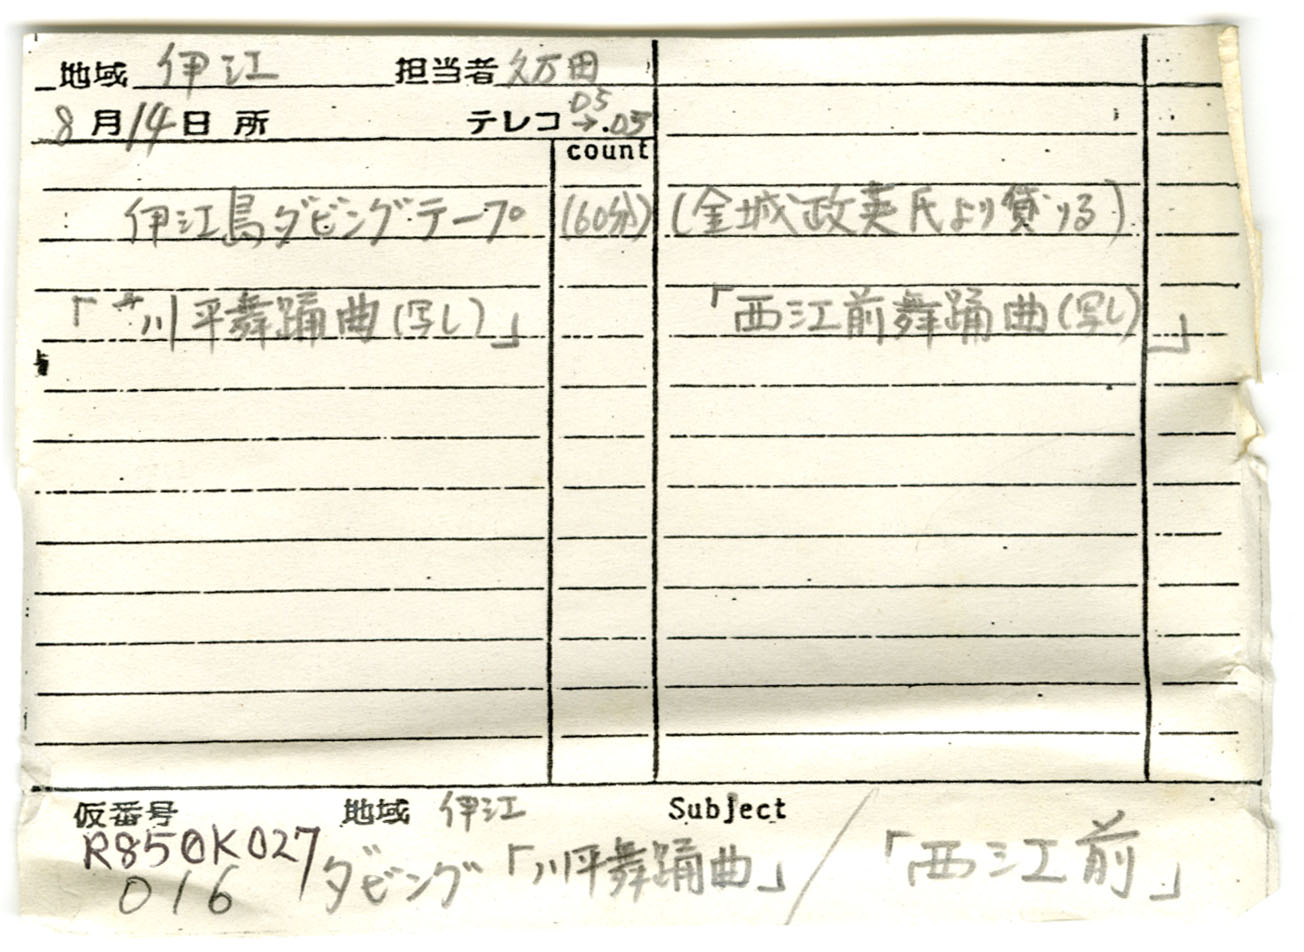 地域 伊江 担当者 久万田
8月14日 所 テレコ D5→.D5
count
伊江島ダビングテープ (60分) (金城政英氏より貸りる)
「川平舞踊曲(写し)」 「西江前舞踊曲(写し)」
仮番号 地域 伊江 Subject
R85OK027
016 ダビング「川平舞踊曲」/「西江前」